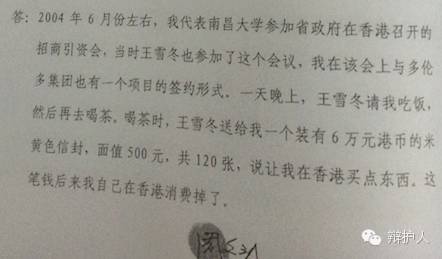 答：2004 年 6 月份左右，我代表南昌大学参加省政府在香港召开的
招商引资会，当时王雪冬也参加了这个会议，我在该会上与多伦
多集团也有一个项目的签约形式。一天晚上，王雪冬请我吃饭，
然后再去喝茶。喝茶时，王雪冬送给我一个装有 6 万元港币的米
黄色信封，面值 500 元，共 120 张，说让我在香港买点东西。这
笔钱后来我自己在香港消费掉了。
辩护人